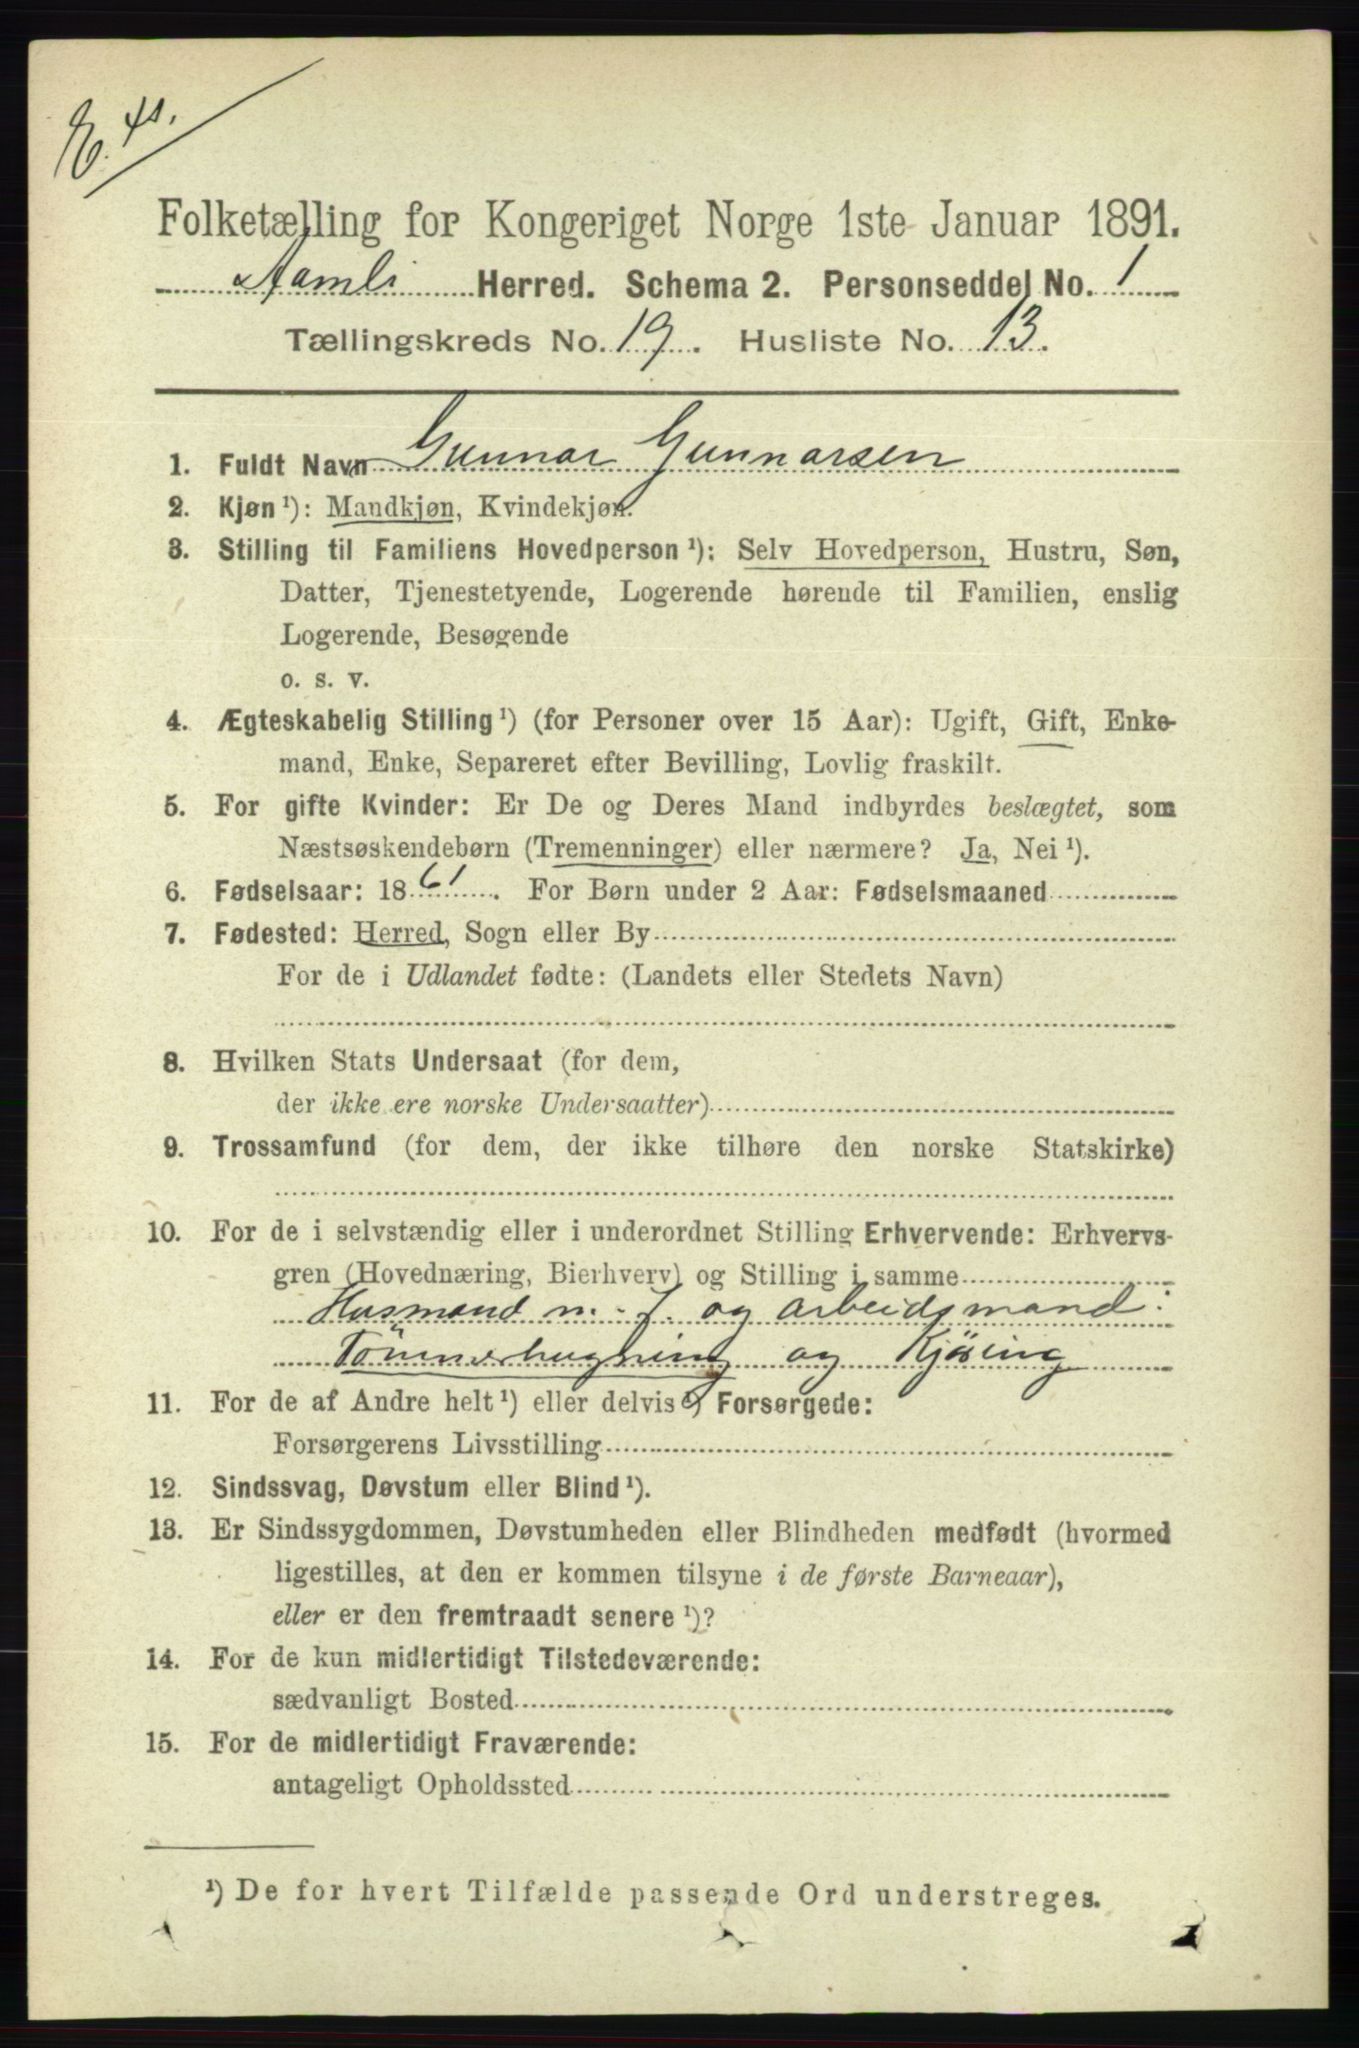 E. 41.
Folketælling for Kongeriget Norge 1ste Januar 1891.
Aamli Herred. Schema 2. Personseddel No. 1
Tællingskreds No. 19. Husliste No. 13.
1. Fuldt Navn Gunnar Gunnarsen
2. Kjøn ¹): Mandkjøn, Kvindekjøn.
3. Stilling til Familiens Hovedperson ¹): Selv Hovedperson, Hustru, Søn,
Datter, Tjenestetyende, Logerende hørende til Familien, enslig
Logerende, Besøgende
o. s. v.
4. Ægteskabelig Stilling ¹) (for Personer over 15 Aar): Ugift, Gift, Enke-
mand, Enke, Separeret efter Bevilling, Lovlig fraskilt.
5. For gifte Kvinder: Er De og Deres Mand indbyrdes beslægtet, som
Næstsøskendebørn (Tremenninger) eller nærmere? Ja, Nei ¹).
6. Fødselsaar: 1861. For Børn under 2 Aar: Fødselsmaaned
7. Fødested: Herred, Sogn eller By
For de i Udlandet fødte: (Landets eller Stedets Navn)
8. Hvilken Stats Undersaat (for dem,
der ikke ere norske Undersaatter)
9. Trossamfund (for dem, der ikke tilhøre den norske Statskirke)
10. For de i selvstændig eller i underordnet Stilling Erhvervende: Erhvervs-
gren (Hovednæring, Bierhverv) og Stilling i samme
Husmand m. J. og arbeidsmand:
Tömmerhugning og Kjöring
11. For de af Andre helt ¹) eller delvis ¹) Forsørgede:
Forsørgerens Livsstilling
12. Sindssvag, Døvstum eller Blind ¹).
13. Er Sindssygdommen, Døvstumheden eller Blindheden medfødt (hvormed
ligestilles, at den er kommen tilsyne i de første Barneaar),
eller er den fremtraadt senere ¹)?
14. For de kun midlertidigt Tilstedeværende:
sædvanligt Bosted
15. For de midlertidigt Fraværende:
antageligt Opholdssted
¹) De for hvert Tilfælde passende Ord understreges.